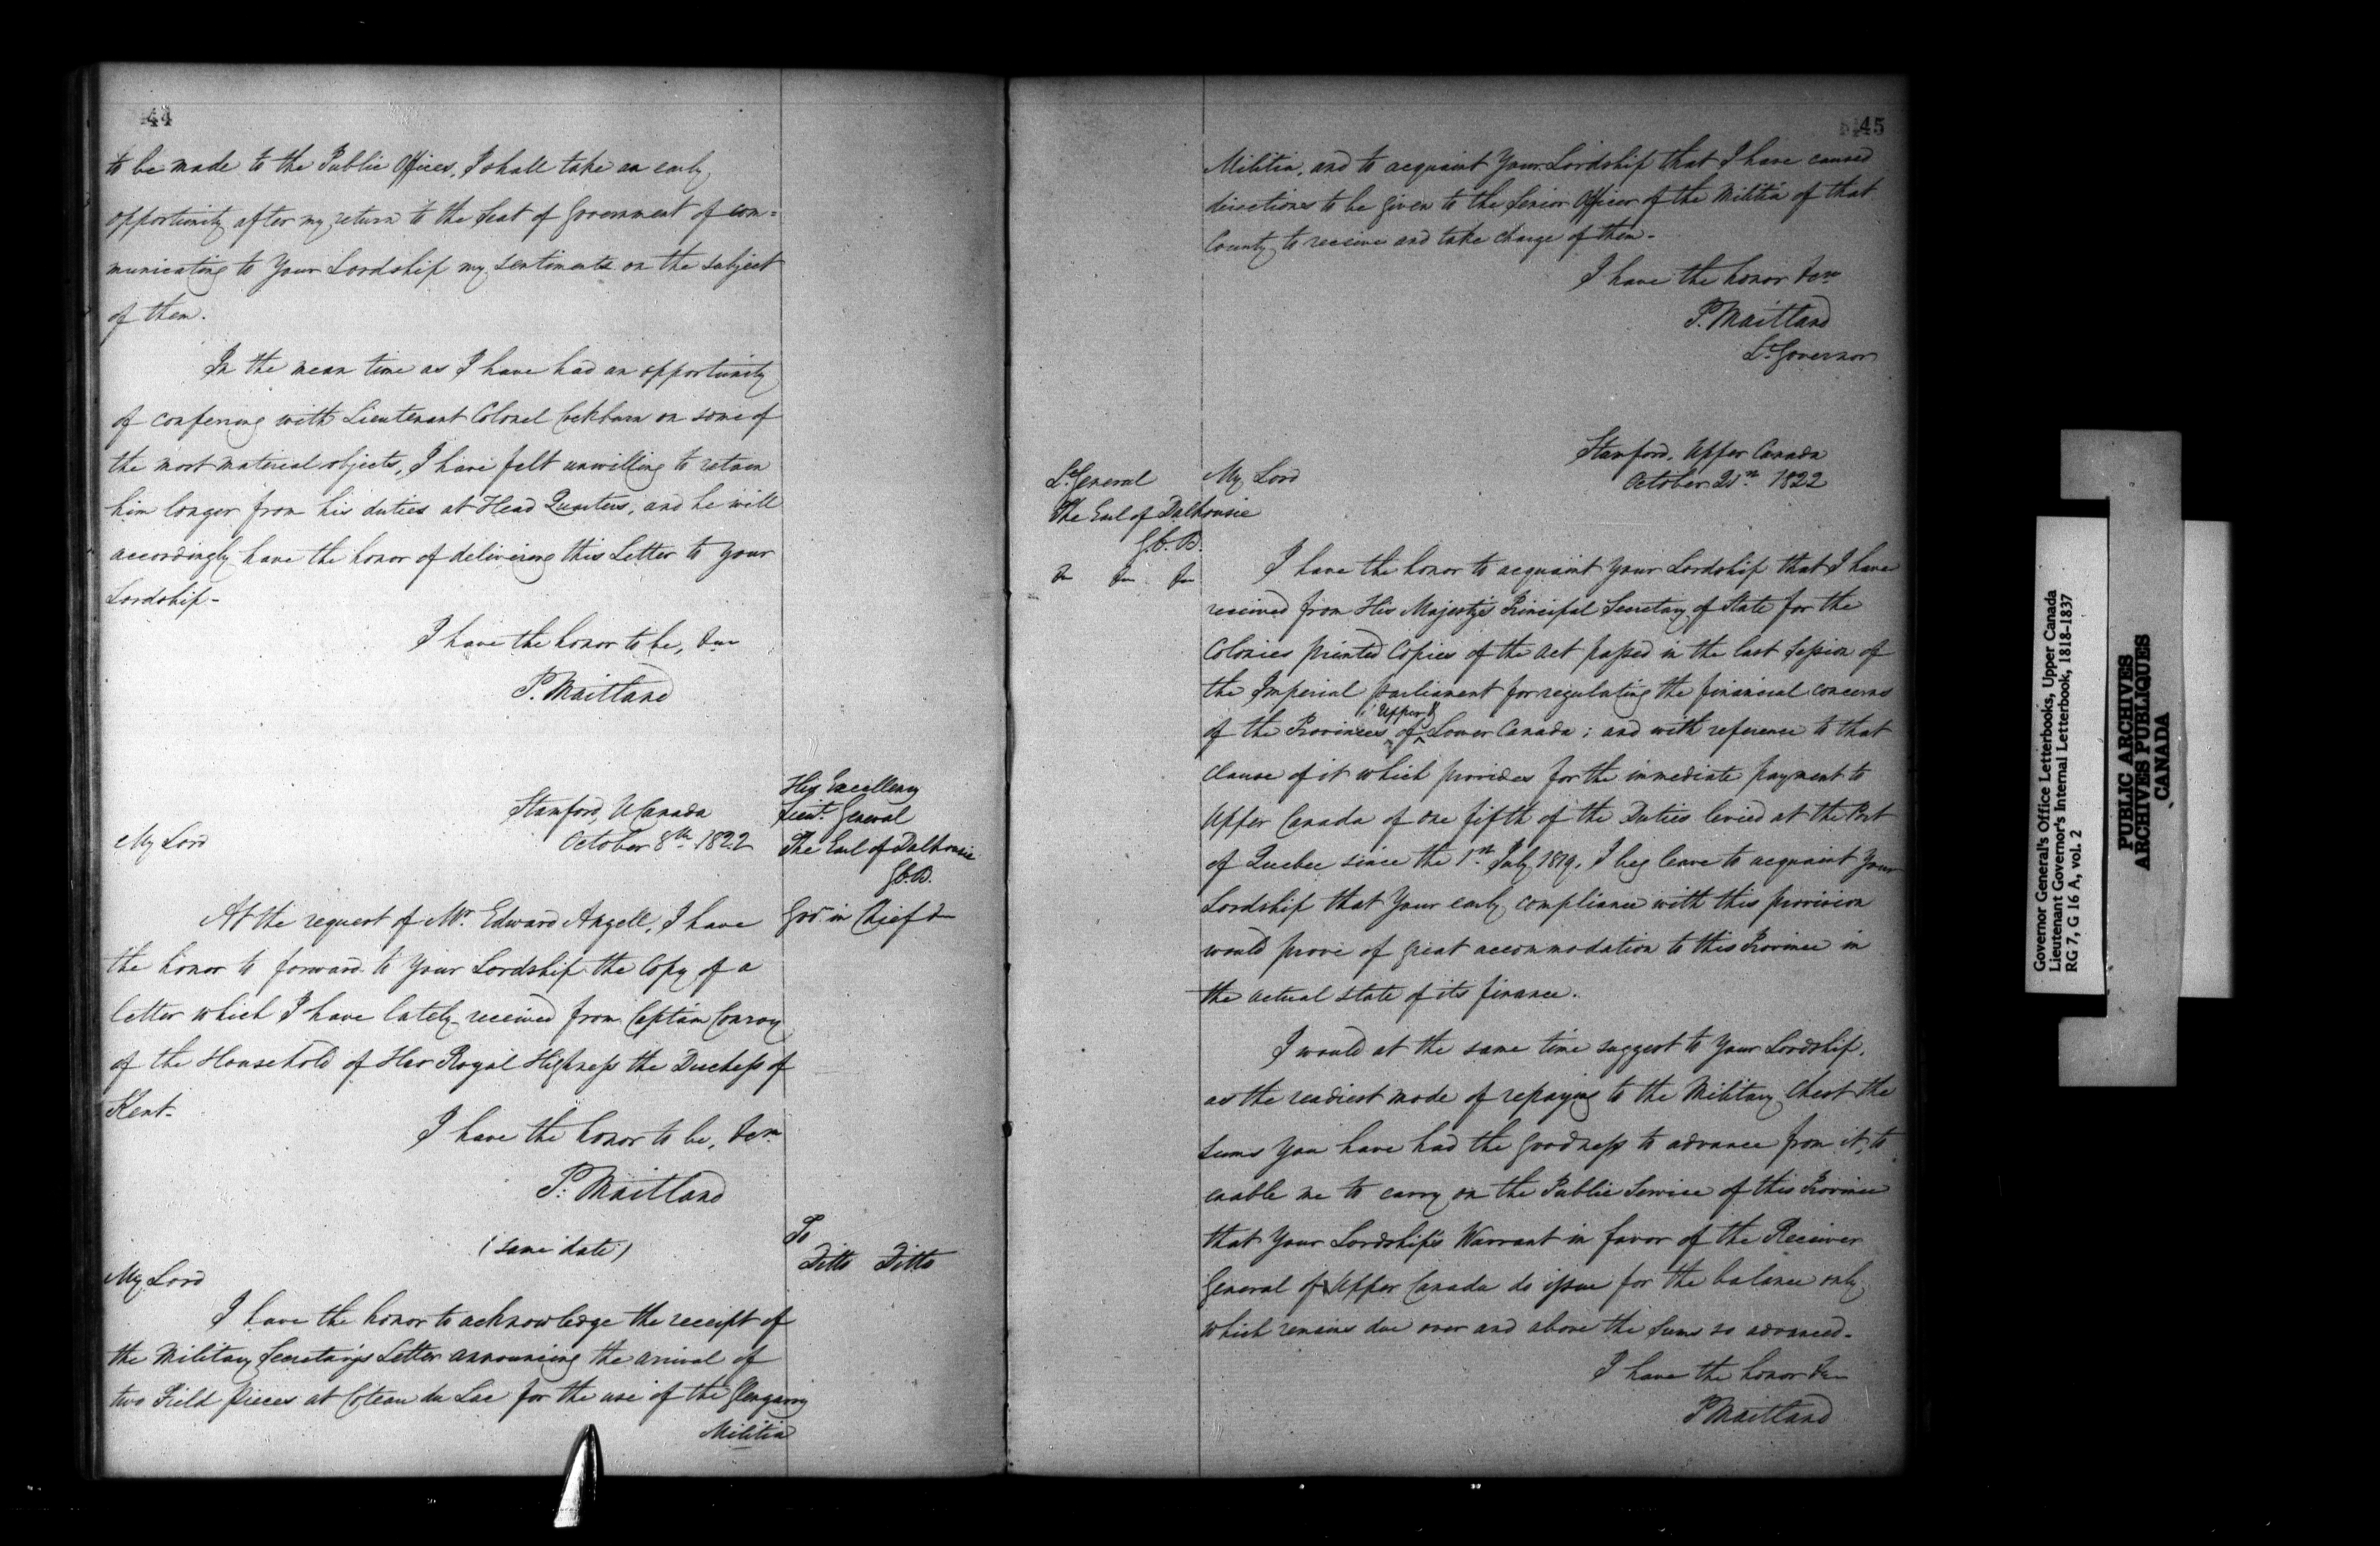 44
to be made to the Public Offices, I shall take an early
opportunity after my return to the Seat of Government of com=
municating to Your Lordship my sentiments on the subject
of them.
In the mean time as I have had an opportunity
of conferring with Lieutenant Colonel Cockburn on some of
the most material objects, I have felt unwilling to retain
him longer from his duties at Head Quarters, and he will
accordingly have the honor of delivering this Letter to Your
Lordship-
I have the honor to be, &c
P. Maitland
His Excellency
Lieut. General
The Earl of Dalhousie
G.C.B.
Govr. in Chief &
Stamford, U Canada
October 8th 1822
My Lord
At the request of Mr. Edward Angell, I have
the honor to forward to Your Lordship the Copy of a
letter which I have lately received from Captain Conroy
of the Household of Her Royal Highness the Duchess of
Kent-
I have the honor to be, &c
P. Maitland
To
Ditto Ditto
(same date)
My Lord
I have the honor to acknowledge the receipt of
the Military Secretary's Letter announcing the arrival of
two Field Pieces at Coteau du Lac for the use of the Glengarry
Militia
45
Militia, and to acquaint Your Lordship that I have caused
directions to be given to the Senior Officer of the Militia of that
County to receive and take charge of them-
I have the honor &c
P. Maitland
Lt Governor
Stamford, Upper Canada
October 21st 1822
Lt General
The Earl of Dalhousie
G.C.B.
&c &c &c
My Lord
I have the honor to acquaint Your Lordship that I have
received from His Majesty's Principal Secretary of State for the
Colonies printed Copies of the Act passed in the last Session of
the Imperial Parliament for regulating the financial concerns
of the Provinces of Upper & Lower Canada; and with reference to that
Clause of it which provides for the immediate payment to
Upper Canada of one fifth of the Duties levied at the Port
of Quebec since the 1st July 1819, I beg leave to acquaint Your
Lordship that Your early compliance with this provision
would prove of great accommodation to this Province in
the actual state of its finance.
I would at the same time suggest to Your Lordship,
as the readiest mode of repaying to the Military Chest the
sums you have had the goodness to advance from it, to
enable me to carry on the Public Service of this Province
that Your Lordship's Warrant in favor of the Receiver
General of Upper Canada do issue for the balance only
which remains due over and above the sums so advanced-
I have the honor &c
P Maitland
Governor General's Office Letterbooks, Upper Canada
Lieutenant Governor's Internal Letterbook, 1818-1837
RG 7, G 16 A, vol. 2
PUBLIC ARCHIVES
ARCHIVES PUBLIQUES
CANADA